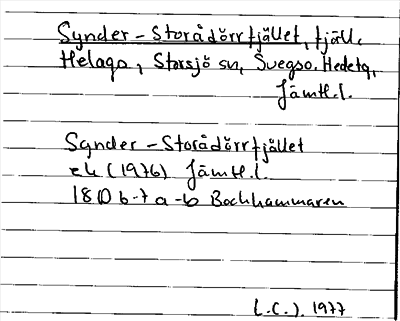 Synder - Storådörrfjället, fjäll.
Helags, Storsjö sn, Svegs o. Hedetg,
Jämtl.l.
Synder - Storådörrfjället
ek (1976) Jämtl.l.
18D 6-7 a-b Bockhammaren
(.C.). 1977